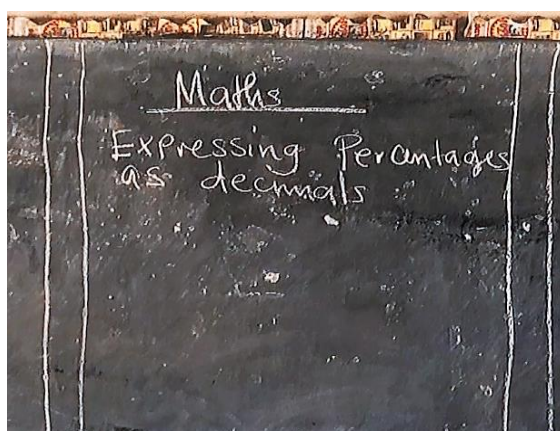 Maths
Expressing Percentages
as decimals